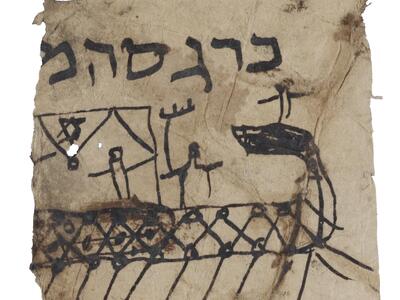 ברגסהמ